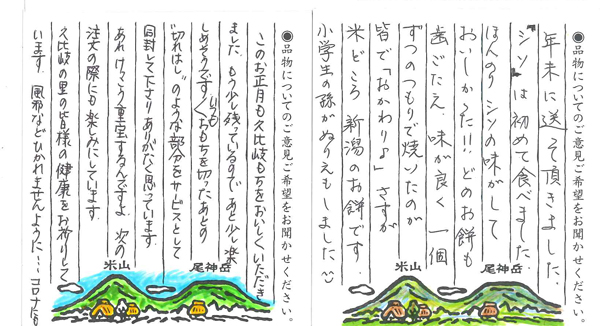 ●品物についてのご意見ご希望をお聞かせください。
年末に送って頂きました。
"シソ"は初めて食べました。
ほんのり シソの味がして
おいしかった!! どのお餅も
歯ごたえ、味が良く 一個
ずつのつもりで焼いたのが
皆で「おかわり♪」さすが
米どころ 新潟のお餅です。
小学生の孫がぬりえもしました
尾神岳
米山
●品物についてのご意見ご希望をお聞かせください。
このお正月も久比岐もちをおいしくいただき
ました。もう少し残っているので あと少し楽
しめそうです。いつも おもちを切ったあとの
"切れはし"のような部分をサービスとして
同封して下さりありがたく思っています。
あれ けっこう重宝するんですよ。次の
注文の際にも楽しみにしています。
久比岐の里の皆様の健康をお祈りして
います。風邪などひかれませんように… コロナにも
尾神岳
米山